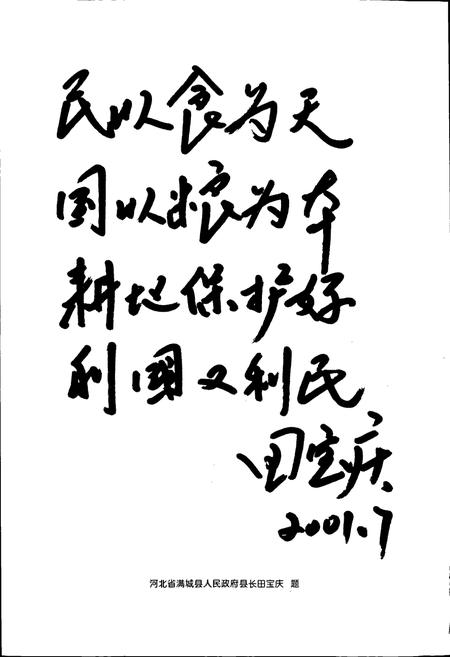 民以食为天
国以粮为本
耕地保护好
利国又利民
田宝庆
2001.7
河北省满城县人民政府县长田宝庆 题